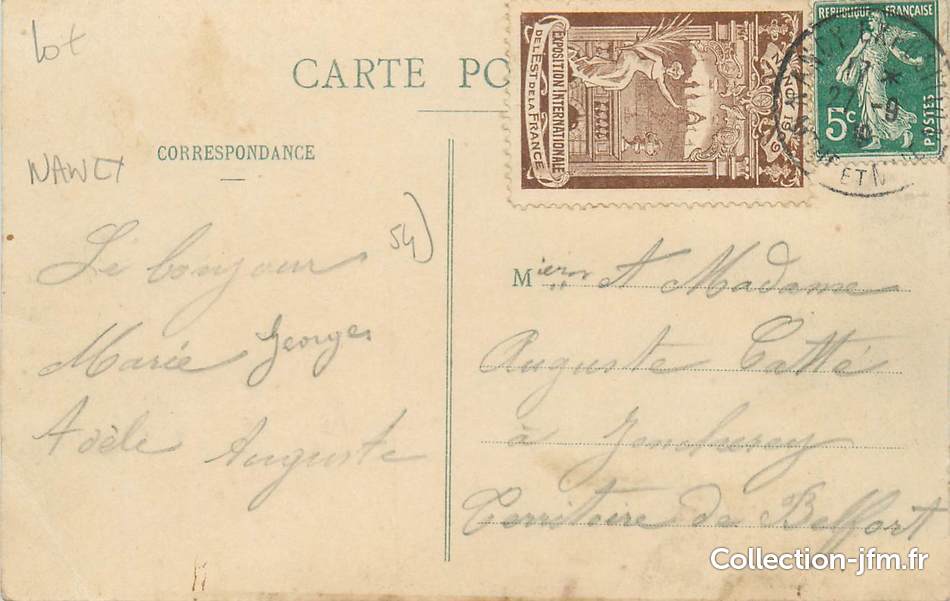 Lot
CARTE PO
CORRESPONDANCE
EXPOSITION INTERNATIONALE
DE L'EST DE LA FRANCE
NANCY 1909
REPUBLIQUE FRANÇAISE
5c
POSTES
17 *
27 -9
ET M
54)
Le bonjour
Marie Georges
Adèle Auguste
Mier et Madame
Auguste Catté
à Joncherey
Territoire de Belfort
Collection-jfm.fr